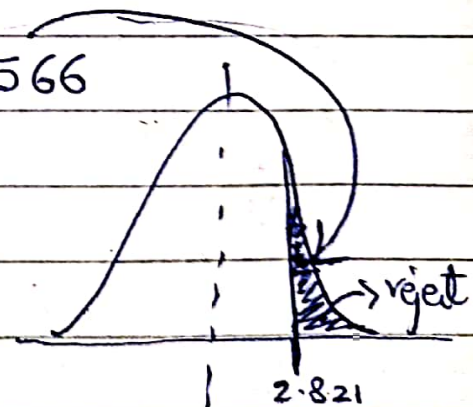 566
reject
2.8.21